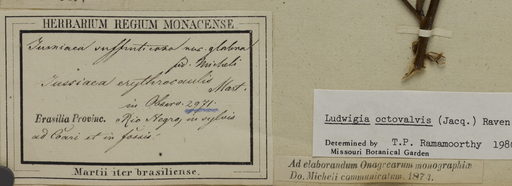 HERBARIUM REGIUM MONACENSE
Jussiaea suffruticosa var. glabra
fid. Micheli
Jussiaea erythrocaulis Mart.
in Observ. 2971.
Brasilia Provinc. Rio Negro, in sylvis
ad Coari et in fossis
Martii iter brasiliense.
Ludwigia octovalvis (Jacq.) Raven
Determined by T.P. Ramamoorthy 1980
Missouri Botanical Garden
Ad elaborandum Onagrearum monographiæ
Do. Micheli communicatum. 1874.